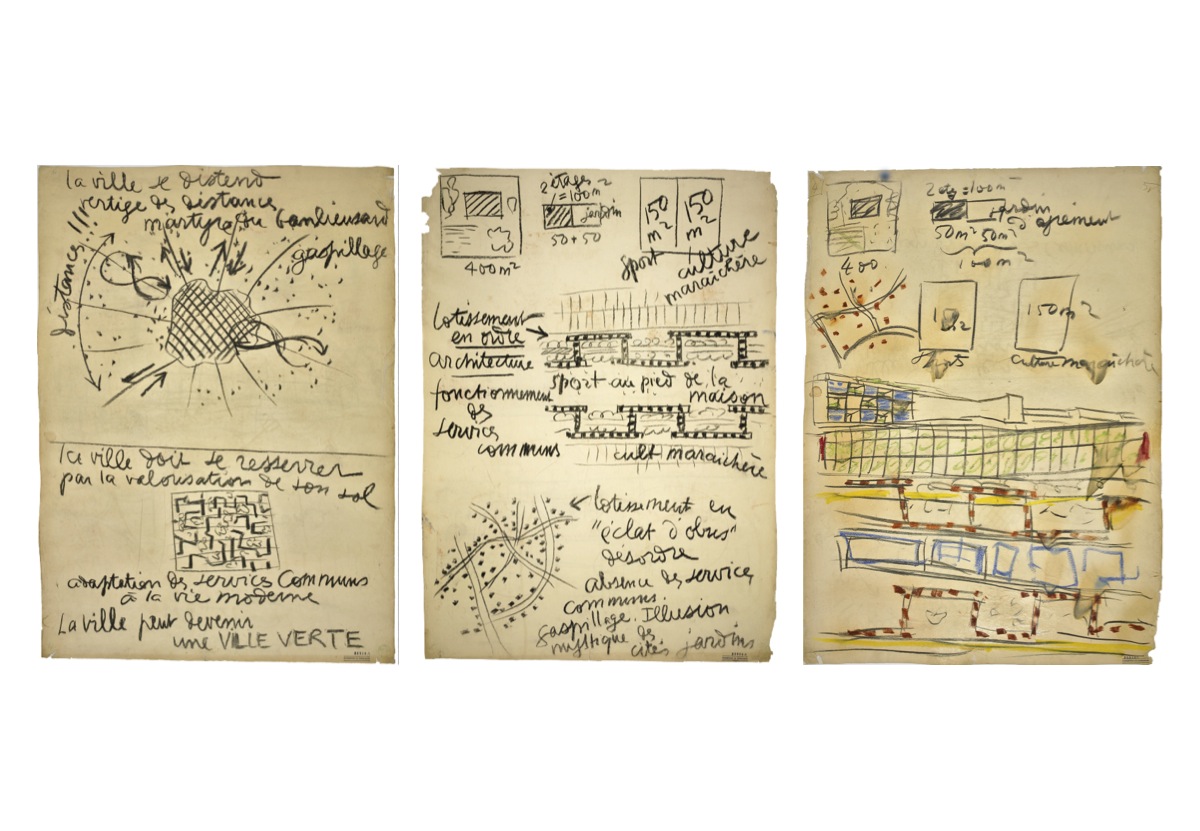 la ville se distend
vertige des distances
martyre du banlieusard
gaspillage
distances !!!
la ville doit se resserrer
par la valorisation de son sol
adaptation des services Communs
à la vie moderne
La ville peut devenir
une VILLE VERTE
2 étages
1 = 100 m²
jardin
50 + 50
400 m²
150 m²
150 m²
sport
culture
maraichère
lotissement
en ordre
architecture
fonctionnement
des
services
communs
sport au pied de la
maison
cult maraichère
← lotissement en
"éclat d'obus"
désordre
absence des services
communs.
gaspillage. Illusion
mystique des
cités jardins
2 etg = 100 m²
jardin
d'agrément
50 m² 50 m²
100 m²
400
150 m²
sports
culture maraichère